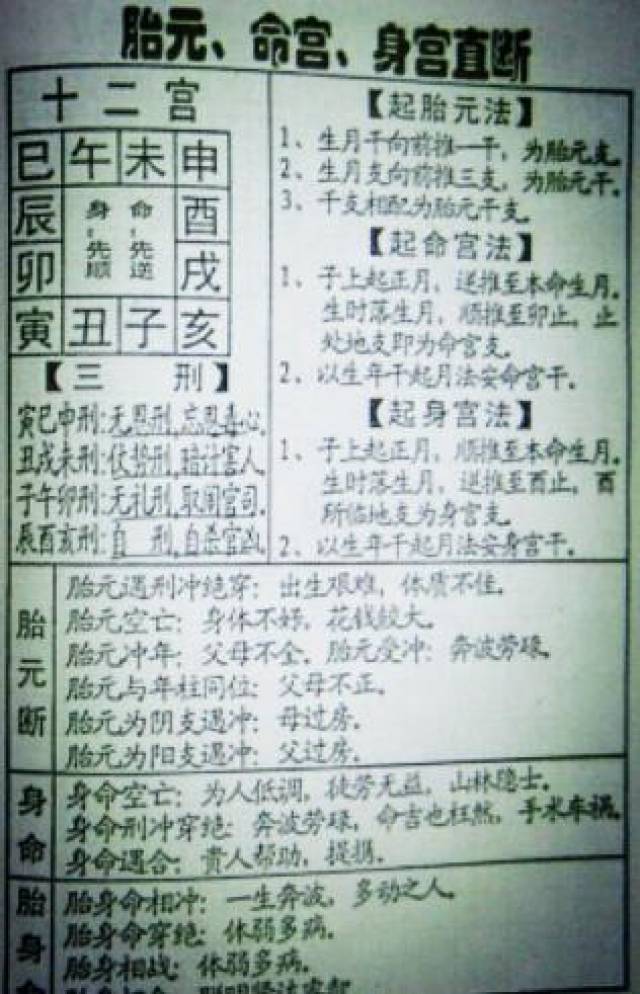 胎元、命宫、身宫直断
十二宫
巳午未申
辰 身 命 酉
先顺 先逆
卯 戌
寅丑子亥
【三 刑】
寅巳申刑:无恩刑,忘恩毒心,
丑戌未刑:伏势刑,暗计害人
子午卯刑:无礼刑,取闹官司.
辰酉亥刑:自 刑,自杀官凶.
【起胎元法】
1、生月干向前推一干,为胎元支.
2、生月支向前推三支,为胎元干.
3、干支相配为胎元干支.
【起命宫法】
1、子上起正月,逆推至本命生月.
生时落生月,顺推至卯止,止
处地支即为命宫支.
2、以生年干起月法安命宫干.
【起身宫法】
1、子上起正月,顺推至本命生月.
生时落生月,逆推至酉止,酉
所临地支为身宫支.
2、以生年干起月法安身宫干.
胎元断
胎元遇刑冲绝穿:出生艰难,体质不佳.
胎元空亡:身体不好,花钱较大.
胎元冲年:父母不全.胎元受冲:奔波劳碌.
胎元与年柱同位:父母不正.
胎元为阴支遇冲:母过房.
胎元为阳支遇冲:父过房.
身命
身命空亡:为人低调,徒劳无益,山林隐士.
身命刑冲穿绝:奔波劳碌,命吉也枉然,手术车祸.
身命遇合:贵人帮助,提携.
胎身命
胎身命相冲:一生奔波,多动之人.
胎身命穿绝:体弱多病.
胎身相战:体弱多病.